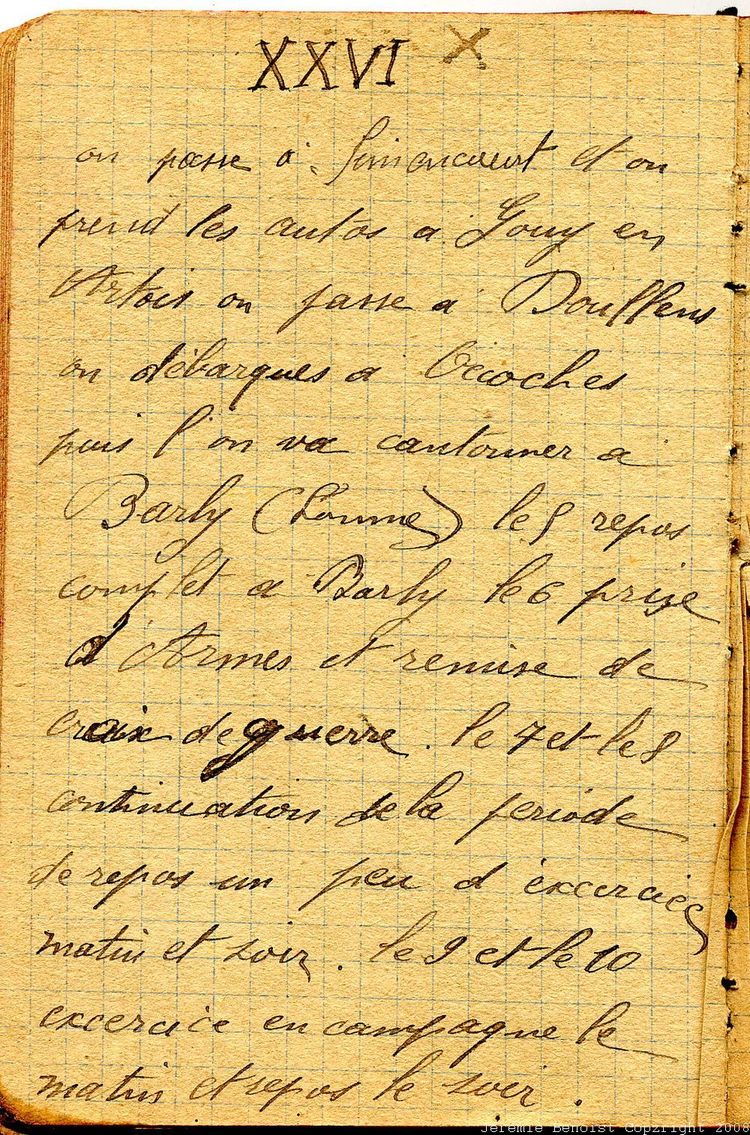 XXVI X
on passe a Simencourt et on
prend les autos a Gouy en
Artois on passe a Doullens
on débarques a Occoches
puis l'on va cantonner a
Barly (Somme) le 5 repos
complet a Barly le 6 prise
d'Armes et remise de
croix de guerre. le 7 et le 8
continuation de la periode
de repos un peu d'éxcercices
matin et soir. le 9 et le 10
excercice en campagne le
matin et repos le soir.
Jeremie Benoist Copyright 2008